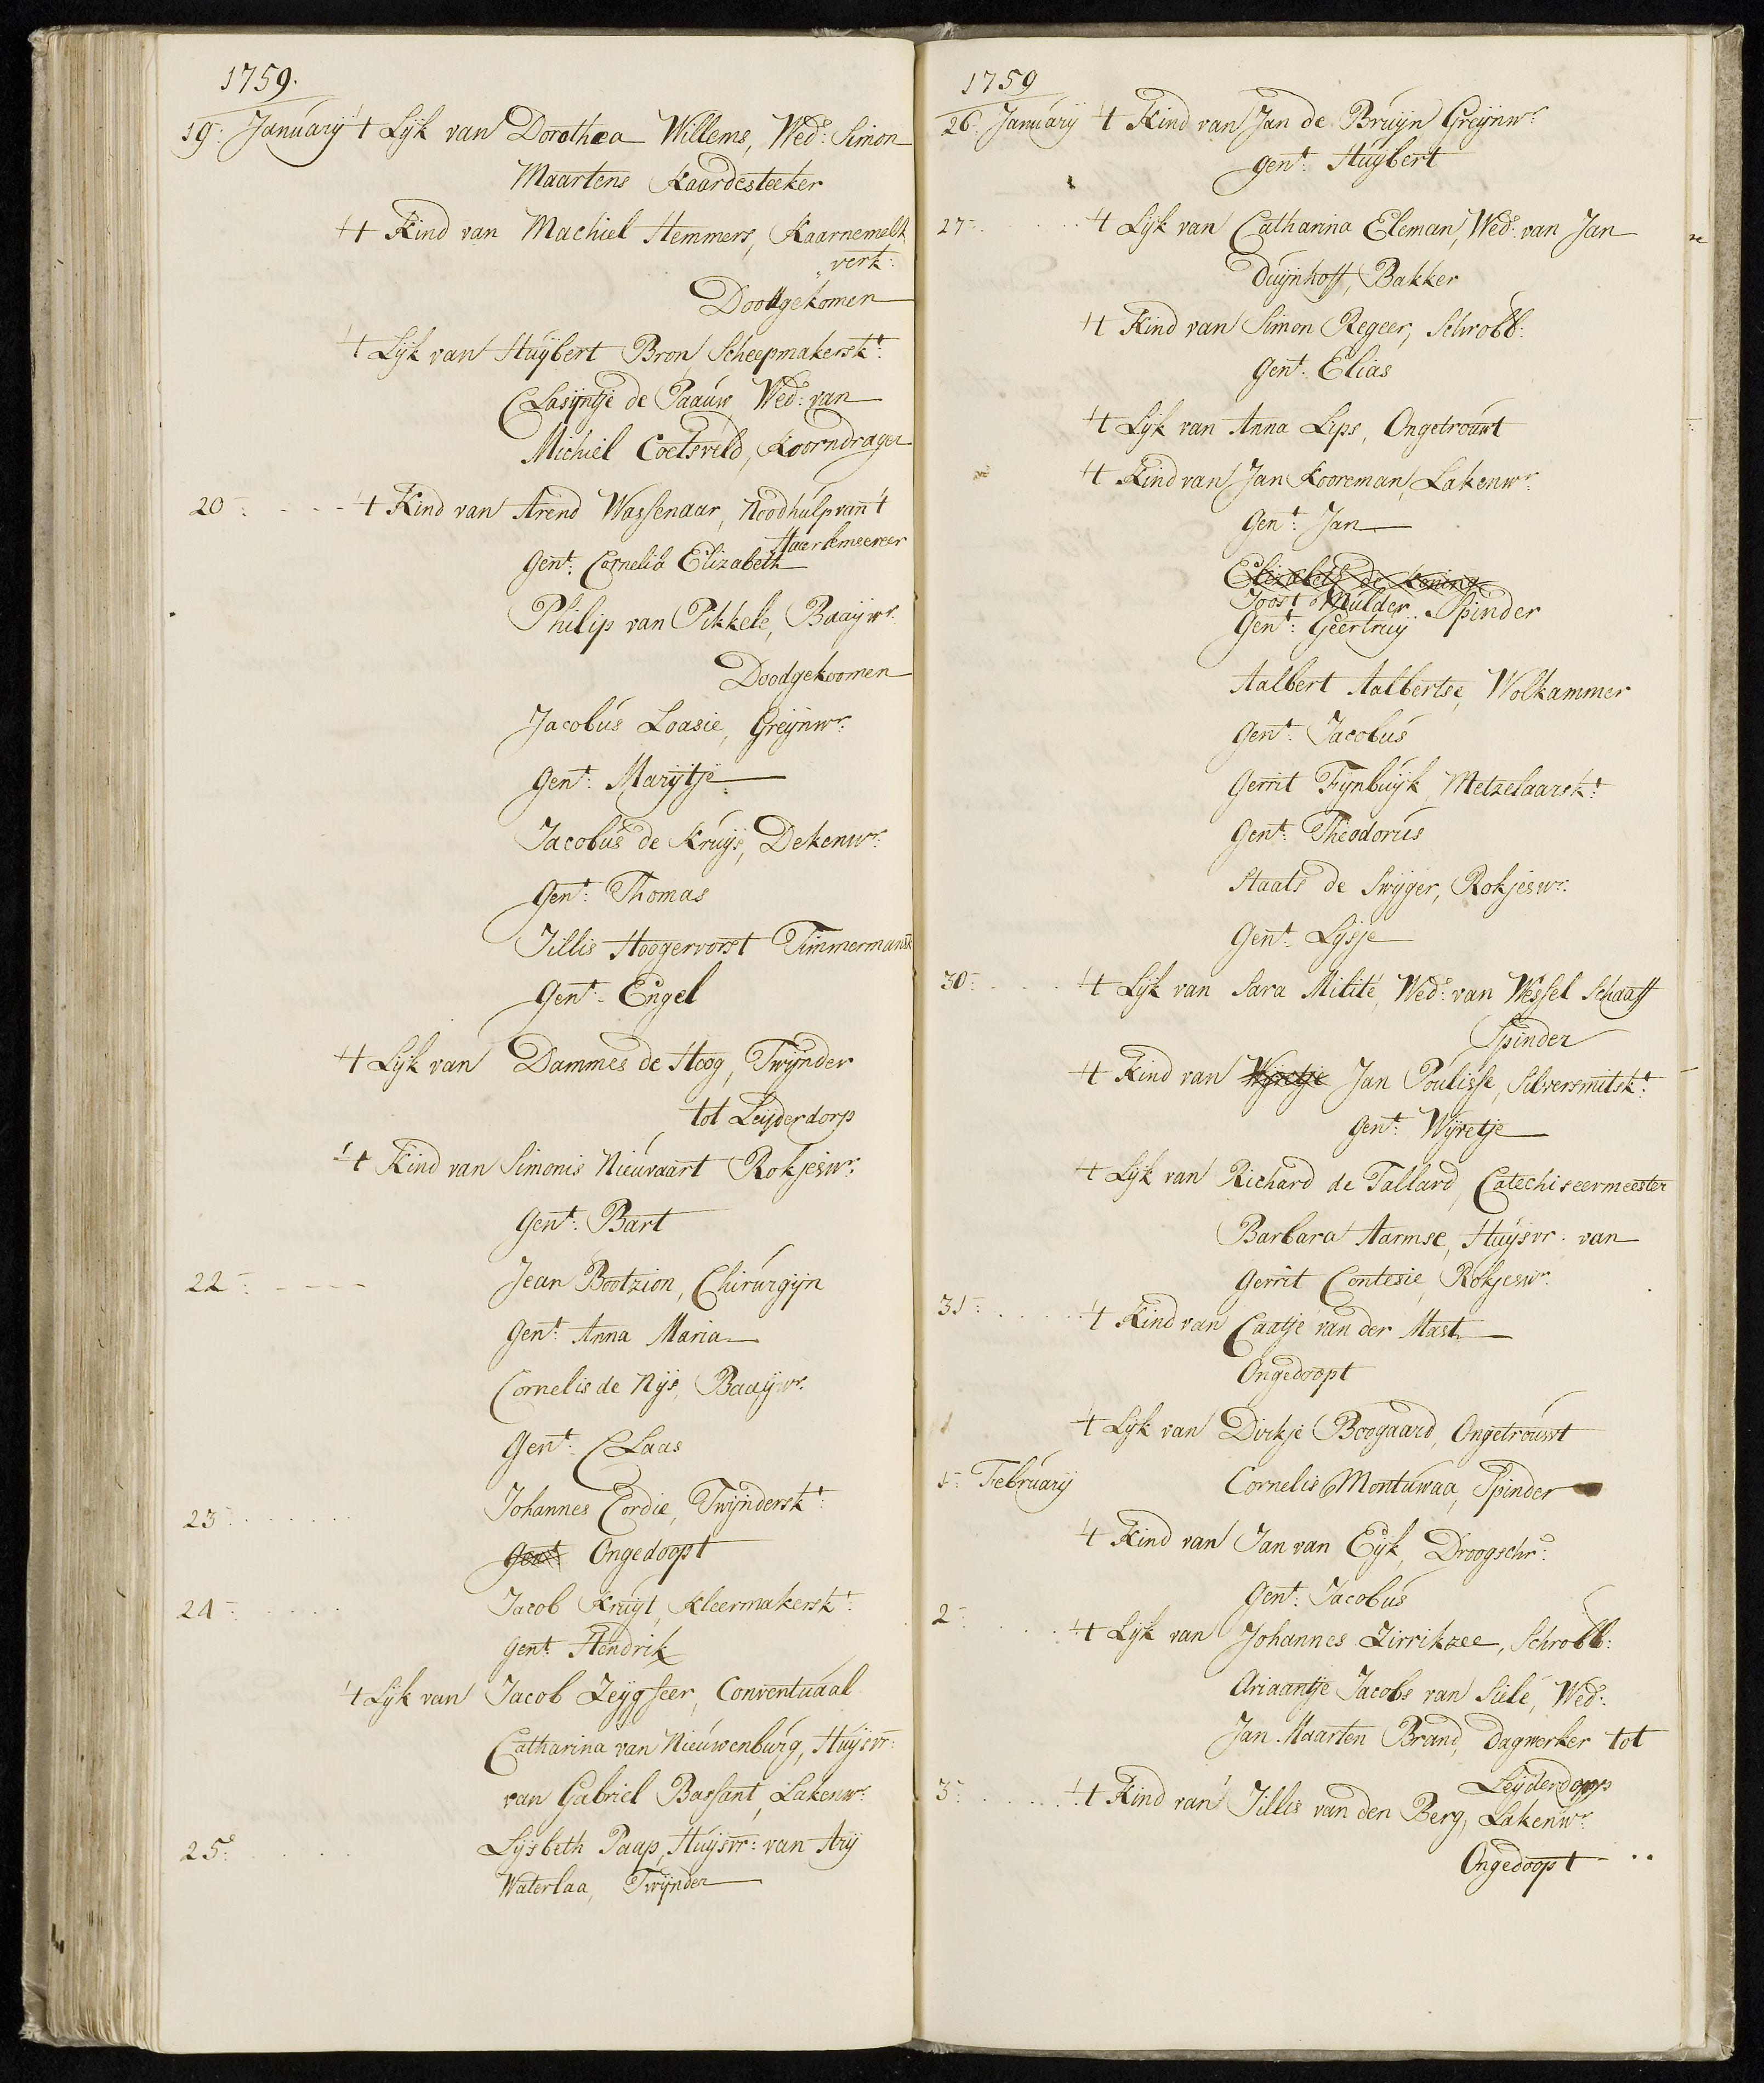 1759.
19: January 't Lijk van Dorothea Willems, Wed: Simon
Maartens Kaardesteeker
't Kind van Machiel Hemmers, Kaarnemelk
verk:
Doodgekomen
't Lijk van Huijbert Bron, Scheepmakerskt:
Clasijntje de Paauw, Wed: van
Michiel Coelsveld, Koorndrager
20 - 't Kind van Arend Wassenaar, Noodhulp van 't
Haarlemeereer
Gent: Cornelia Elizabeth
Philip van Pikkele, Baaijwr:
Doodgekoomen
Jacobus Loasie, Greijnwr:
Gent: Marijtje
Jacobus de Kruijs, Dekenwr:
Gent: Thomas
Jillis Hoogervorst Timmermansk
Gent: Engel
't Lijk van Dammes de Hoog, Twijnder
tot Leijderdorp
't Kind van Simonis Nieuvaart Rokjeswr:
Gent: Bart
22 - Jean Bootzion, Chirurgijn
Gent: Anna Maria
Cornelis de Nijs, Baaijwr:
Gent: Claas
23 Johannes Cordie, Twijnderskt:
Gent: Ongedoopt
24 - Jacob Kruijt, Kleermakerskt:
Gent: Hendrik
't Lijk van Jacob Zeijgseer, Conventuaal
Catharina van Nieuwenburg, Huijsvr:
van Gabriel Bassant, Lakenwr:
25: Lijsbeth Paap, Huijsvr: van Arij
Waterlaa, Twijnder
1759
26: January 't Kind van Jan de Bruijn Greijnwr:
Gent: Huijbert
27 - 't Lijk van Catharina Eleman, Wed: van Jan
Duijnhoff, Bakker
't Kind van Simon Regeer, Schrobb:
Gent: Elias
't Lijk van Anna Lips, Ongetrouwt
't Kind van Jan Kooreman, Lakenwr:
Gent: Jan
Elizabeth de Koning
Joost Mulder Spinder
Gent: Geertruij
Aalbert Aalbertse, Wolkammer
Gent: Jacobus
Gerrit Fijnbuijk, Metzelaarskt:
Gent: Theodorus
Staats de Swijger, Rokjeswr:
Gent: Lijsje
30 - 't Lijk van Sara Milité, Wed: van Wessel Schaaff
Spinder
't Kind van Wijvetje Jan Poulisse, Silversmitskt:
Gent: Wijvetje
't Lijk van Richard de Tallard, Catechiseermeester
Barbara Harmse, Huijsvr: van
Gerrit Contesie, Rokjeswr:
31 - 't Kind van Caatje van der Mast
Ongedoopt
't Lijk van Dirkje Boogaard, Ongetrouwt
1 - February Cornelis Montuwaa, Spinder
't Kind van Jan van Eijk, Droogschr:
Gent: Jacobus
2 - 't Lijk van Johannes Zirrikzee, Schrobb:
Ariaantje Jacobs van Siele, Wed:
Jan Maarten Brand, Dagwerker tot
Leijderdorp
3 - 't Kind van Jillis van den Berg, Lakenwr:
Ongedoopt